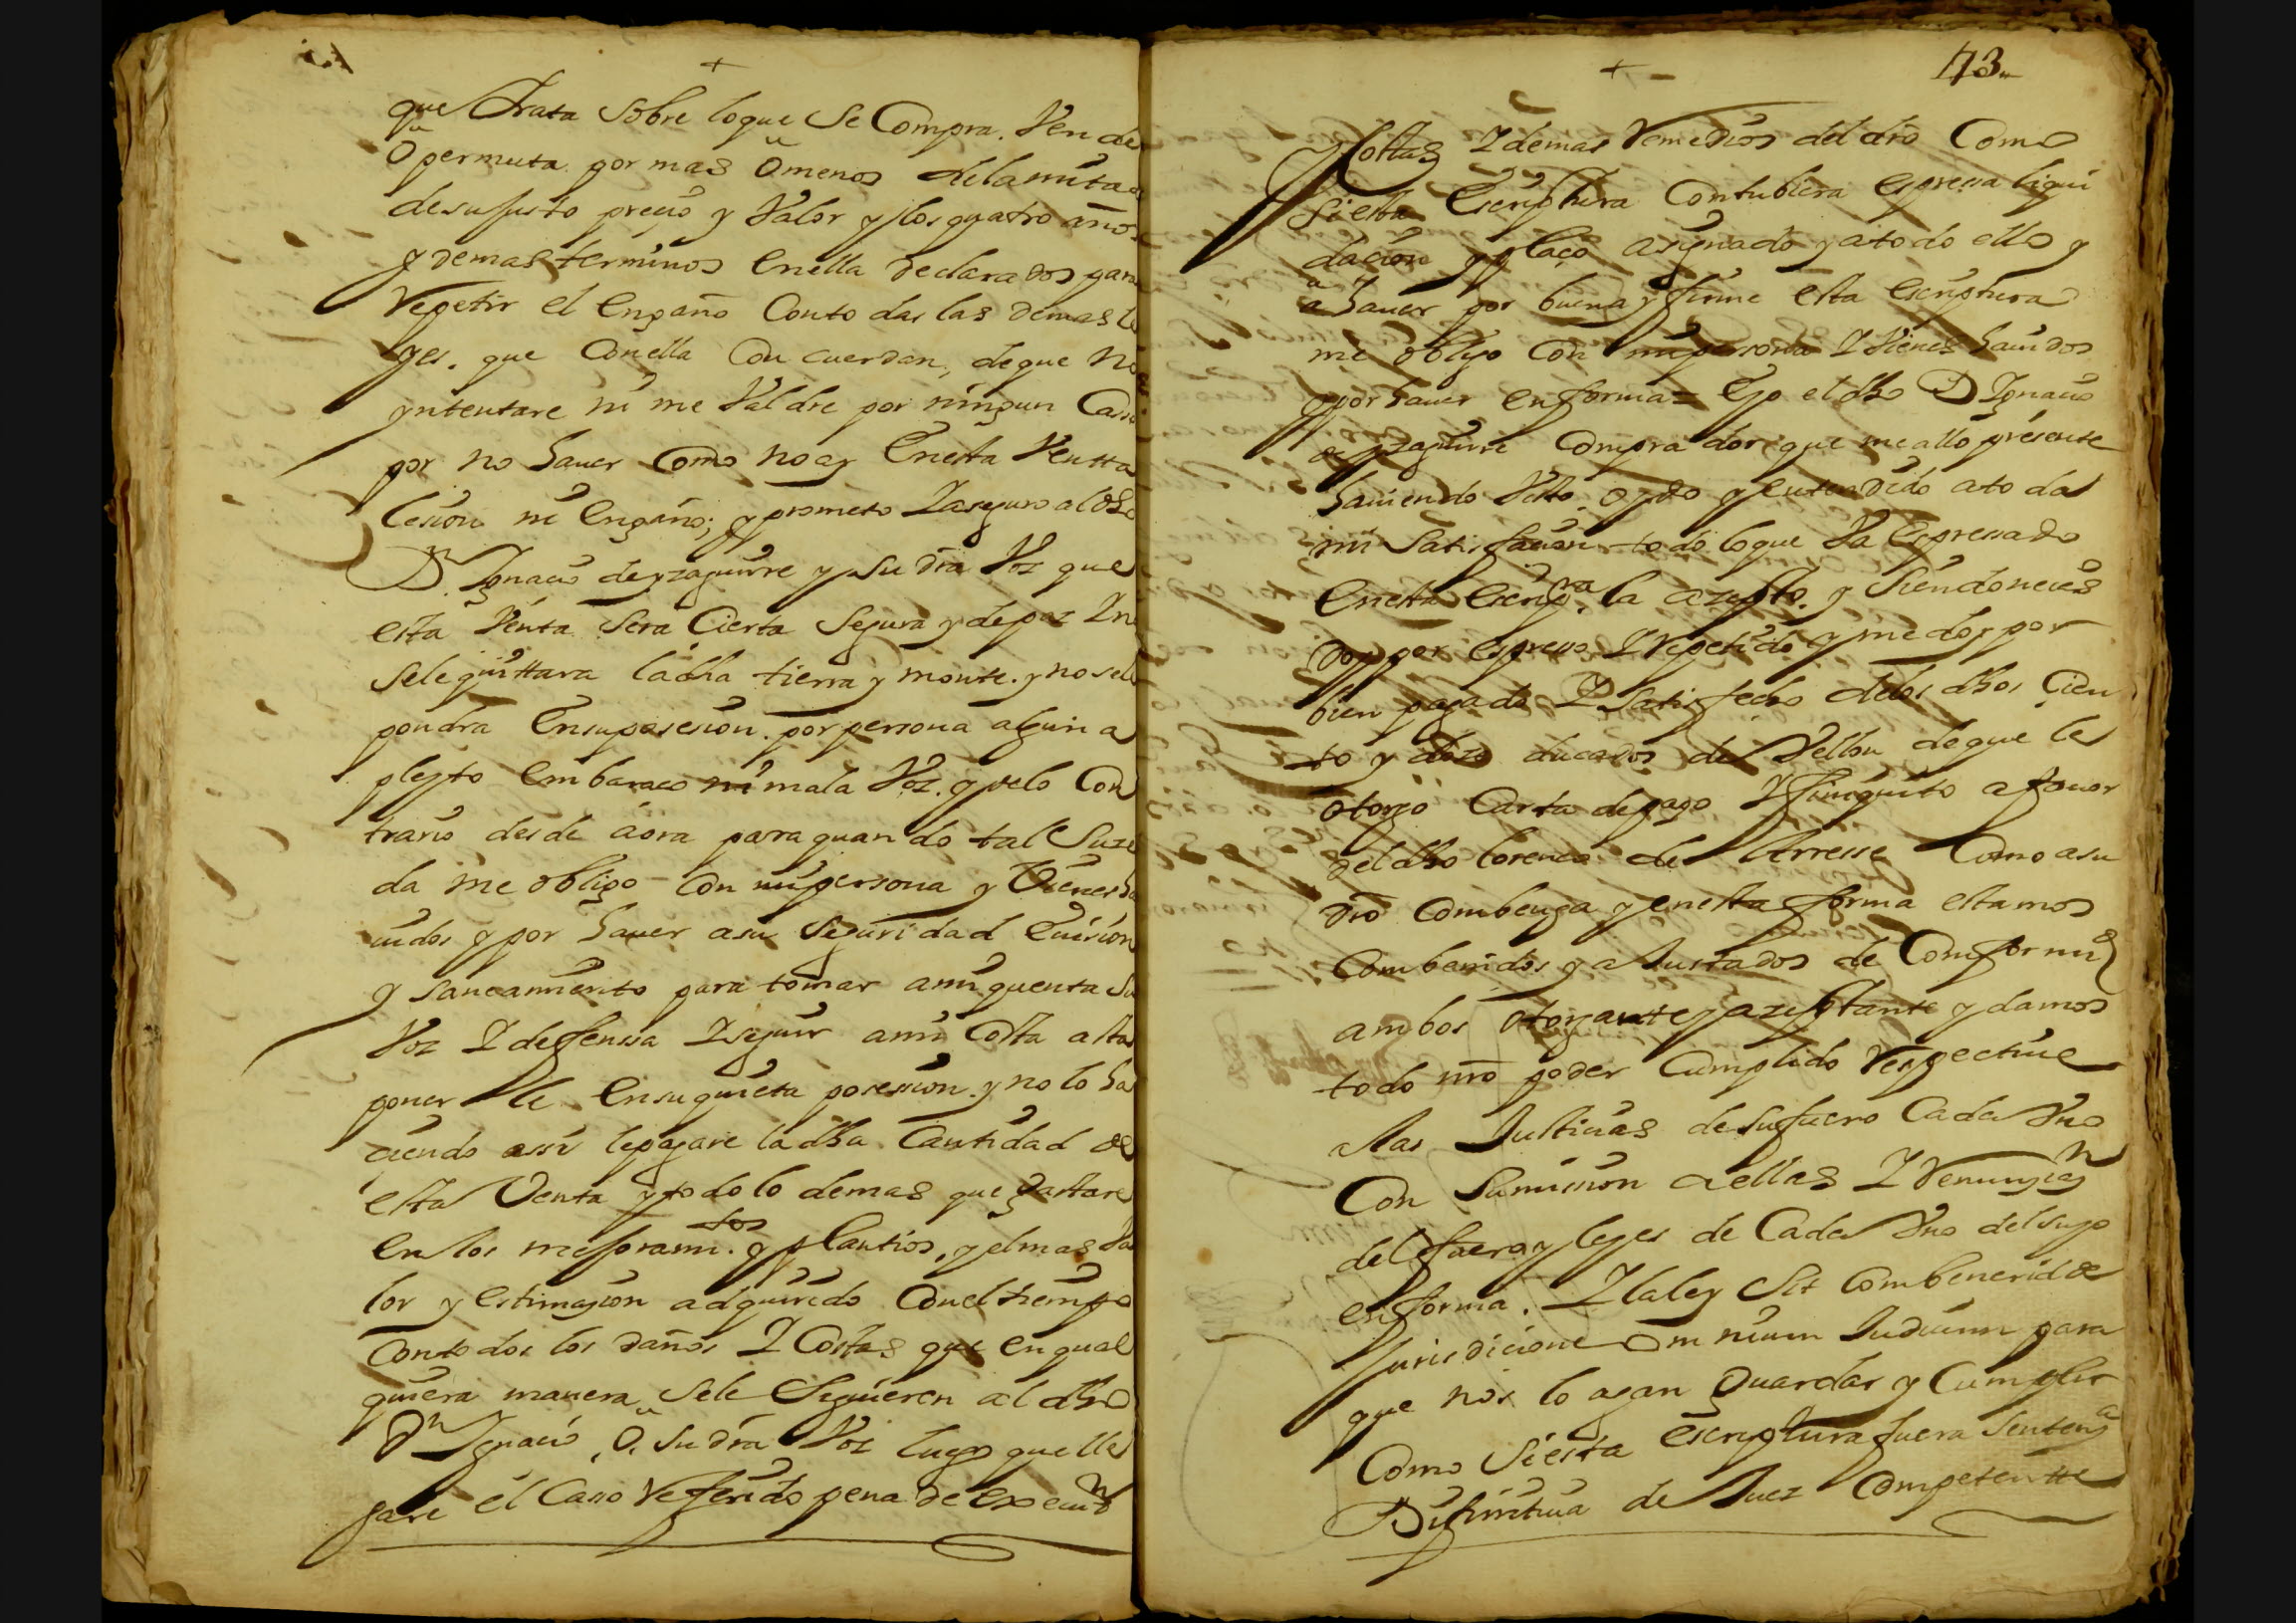 +
que Trata sobre loque se Compra. Vende
o permuta por mas o menos de la mita
desu justo precio y Valor y los quatro años
y demas terminos enella declarados para
Repetir el Engaño Contodas las demas le
yes. que Conella Concuerdan, de que no
yntentare ni me Valdre por ningun Casso
por no hauer Como no ay Enesta Ventta
lesion ni Engaño; y prometo Y aseguro al dho
Dn. Ignacio de yzaguirre y su dra Voz que
esta Venta sera Cierta Segura y depaz Y no
sele quittara la dha tierra y monte. y no sele
pondra Ensuposesion. por persona alguna
pleyto embaraco ni mala Voz. y velo Con
trario desde aora para quando tal Suze
da me obligo Con mi persona y Vienes ha
uidos y por hauer asu Seguridad Euicion
y saneamiento para tomar ami quenta su
Voz Y defenssa Y seguir ami Costa asta
poner le Ensuquieta posession. y no lo ha
ciendo assi le pagare la dha Cantidad de
esta Venta y todo lo demas que gastare
en los mejoramitos. y plantios, y el mas Va
lor y estimazion adquirido Conel tiempo
Contodos los daños Y Costas que en qual
quiera manera sele Siguieren al dho
Dn Ignacio, o, su dra Voz luego que lle
gare el Caso Referido pena de execuon
+
173
Costas Y demas Remedios del dro Como
si esta Escriptura Contubiera espressa liqui
dacion y plaço asignado y atodo ello y
a hauer por buena y firme esta escriptura
me obligo Con mi persona Y Vienes hauidos
y por hauer enforma = Eyo el dho D Ignacio
de yzaguirre Comprador que me allo presente
hauiendo Visto, oydo y entendido atoda
mi Satisfacion todo loque Va Espressado
Enesta Escripra. la azepto. y siendo neces
doy por espresso Y repetido y me doy por
bien pagado Y Satisfecho delos dhos Cien
to y doze ducados de Vellon de que le
otorgo Carta depago Y finiquito a fauor
del dho lorenco de Arresse Como asu
dro Combenga y enesta forma estamos
Combenidos y a Justados de Conformid
ambos otorgante y azeptante y damos
todo nro poder Cumplido Respectiue
alas Justicias desu fuero Cada Vno
Con Sumision aellas Y Renunzion
del fuero y leyes de Cada Vno del suyo
en forma. Y la ley Sit Combenerid de
Jurisdicione omnium Judicum para
que nos lo agan Guardar y Cumplir
Como Siesta escriptura fuera Sentenza
Difinitiua de Juez Competentte